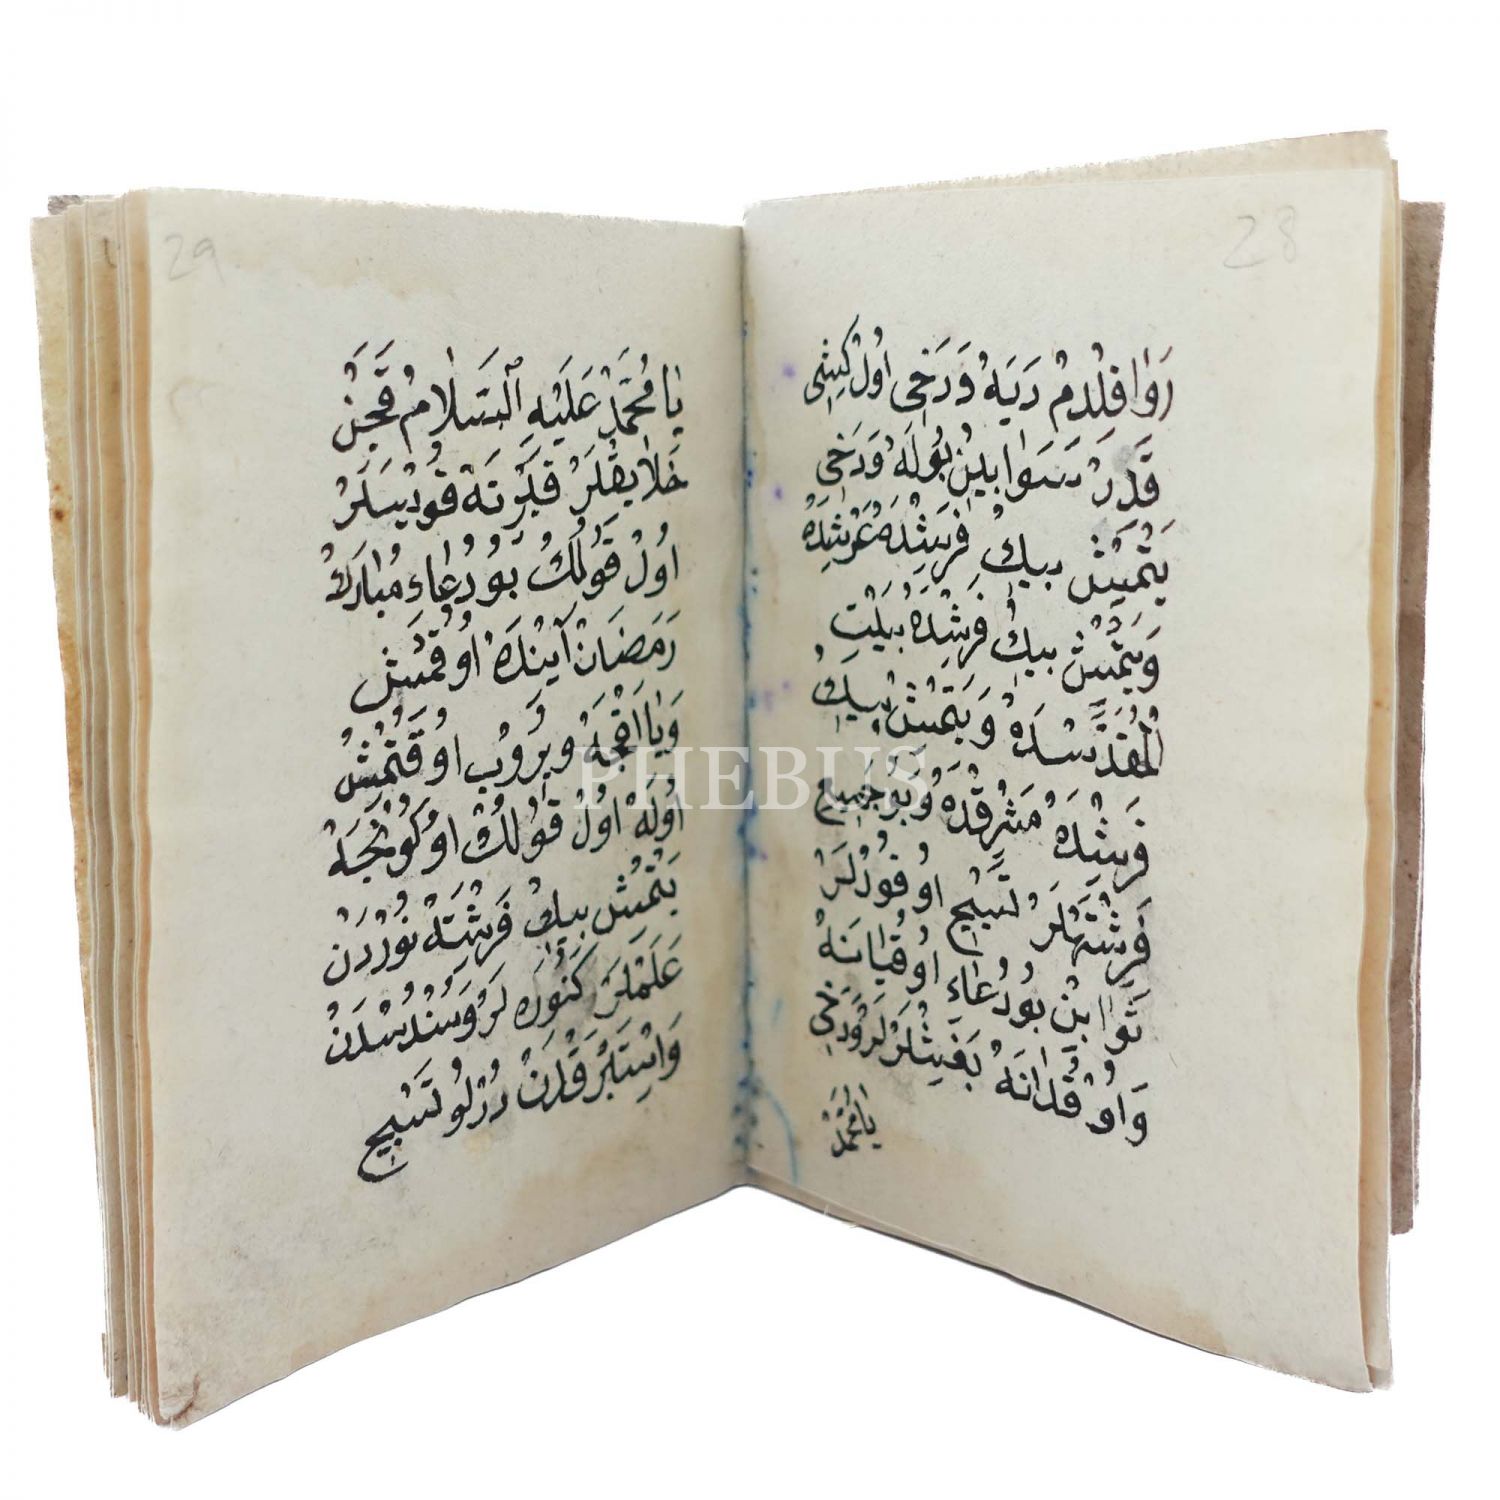 28
رَوَا قِلْدِمْ دَيَهْ وَدَخِى اُولْ كِشِى
قَدَرْ سَوَابِينْ بُولَهْ وَدَخِى
يَتْمِشْ بِيكْ فِرِشْتَدَهْ عَرْشِدَهْ
وَيَتْمِشْ بِيكْ فِرِشْدَهْ بَيْتِ
الْمُقَدَّسْدَهْ وَيَتْمِشْ بِيكْ
فَرِشْدَهْ مَشْرِقْدَهْ وَبُو جَمِيعْ
فَرِشْتَهلَرْ تَسْبِيحْ اُوقُورْلَرْ
ثَوَابِنْ بُو دُعَاءِ اُوقُيَانَهْ
وَاُوْقُدَانَهْ بَغِشْلَرْلَرْ وَدَخِى
يَا مُحَمَّدْ
29
يَا مُحَمَّدْ عَلَيْهِ السَّلَامْ قَچَنْ
خَلَايِقْلَرْ قَبِرْتَهْ قُويْسَلَرْ
اُولْ قُولُكْ بُو دُعَاءِ مُبَارَكْ
رَمَضَانْ آيِنْدَهْ اُوقُمِشْ
وَيَا اَقْچَهْ وِيرُوبْ اُوقُتْمُشْ
اُولَهْ اُولْ قُولُكْ اُوكُونْجَهْ
يَتْمِشْ بِيكْ فَرِشْتَهْ نُورْدَنْ
عَلَمْلَرْ كَتُورَهلَرْ وَسُنْدُسْدَنْ
وَاِسْتَبْرَقْدَنْ دُرْلُو تَسْبِيحْ
PHEBUS